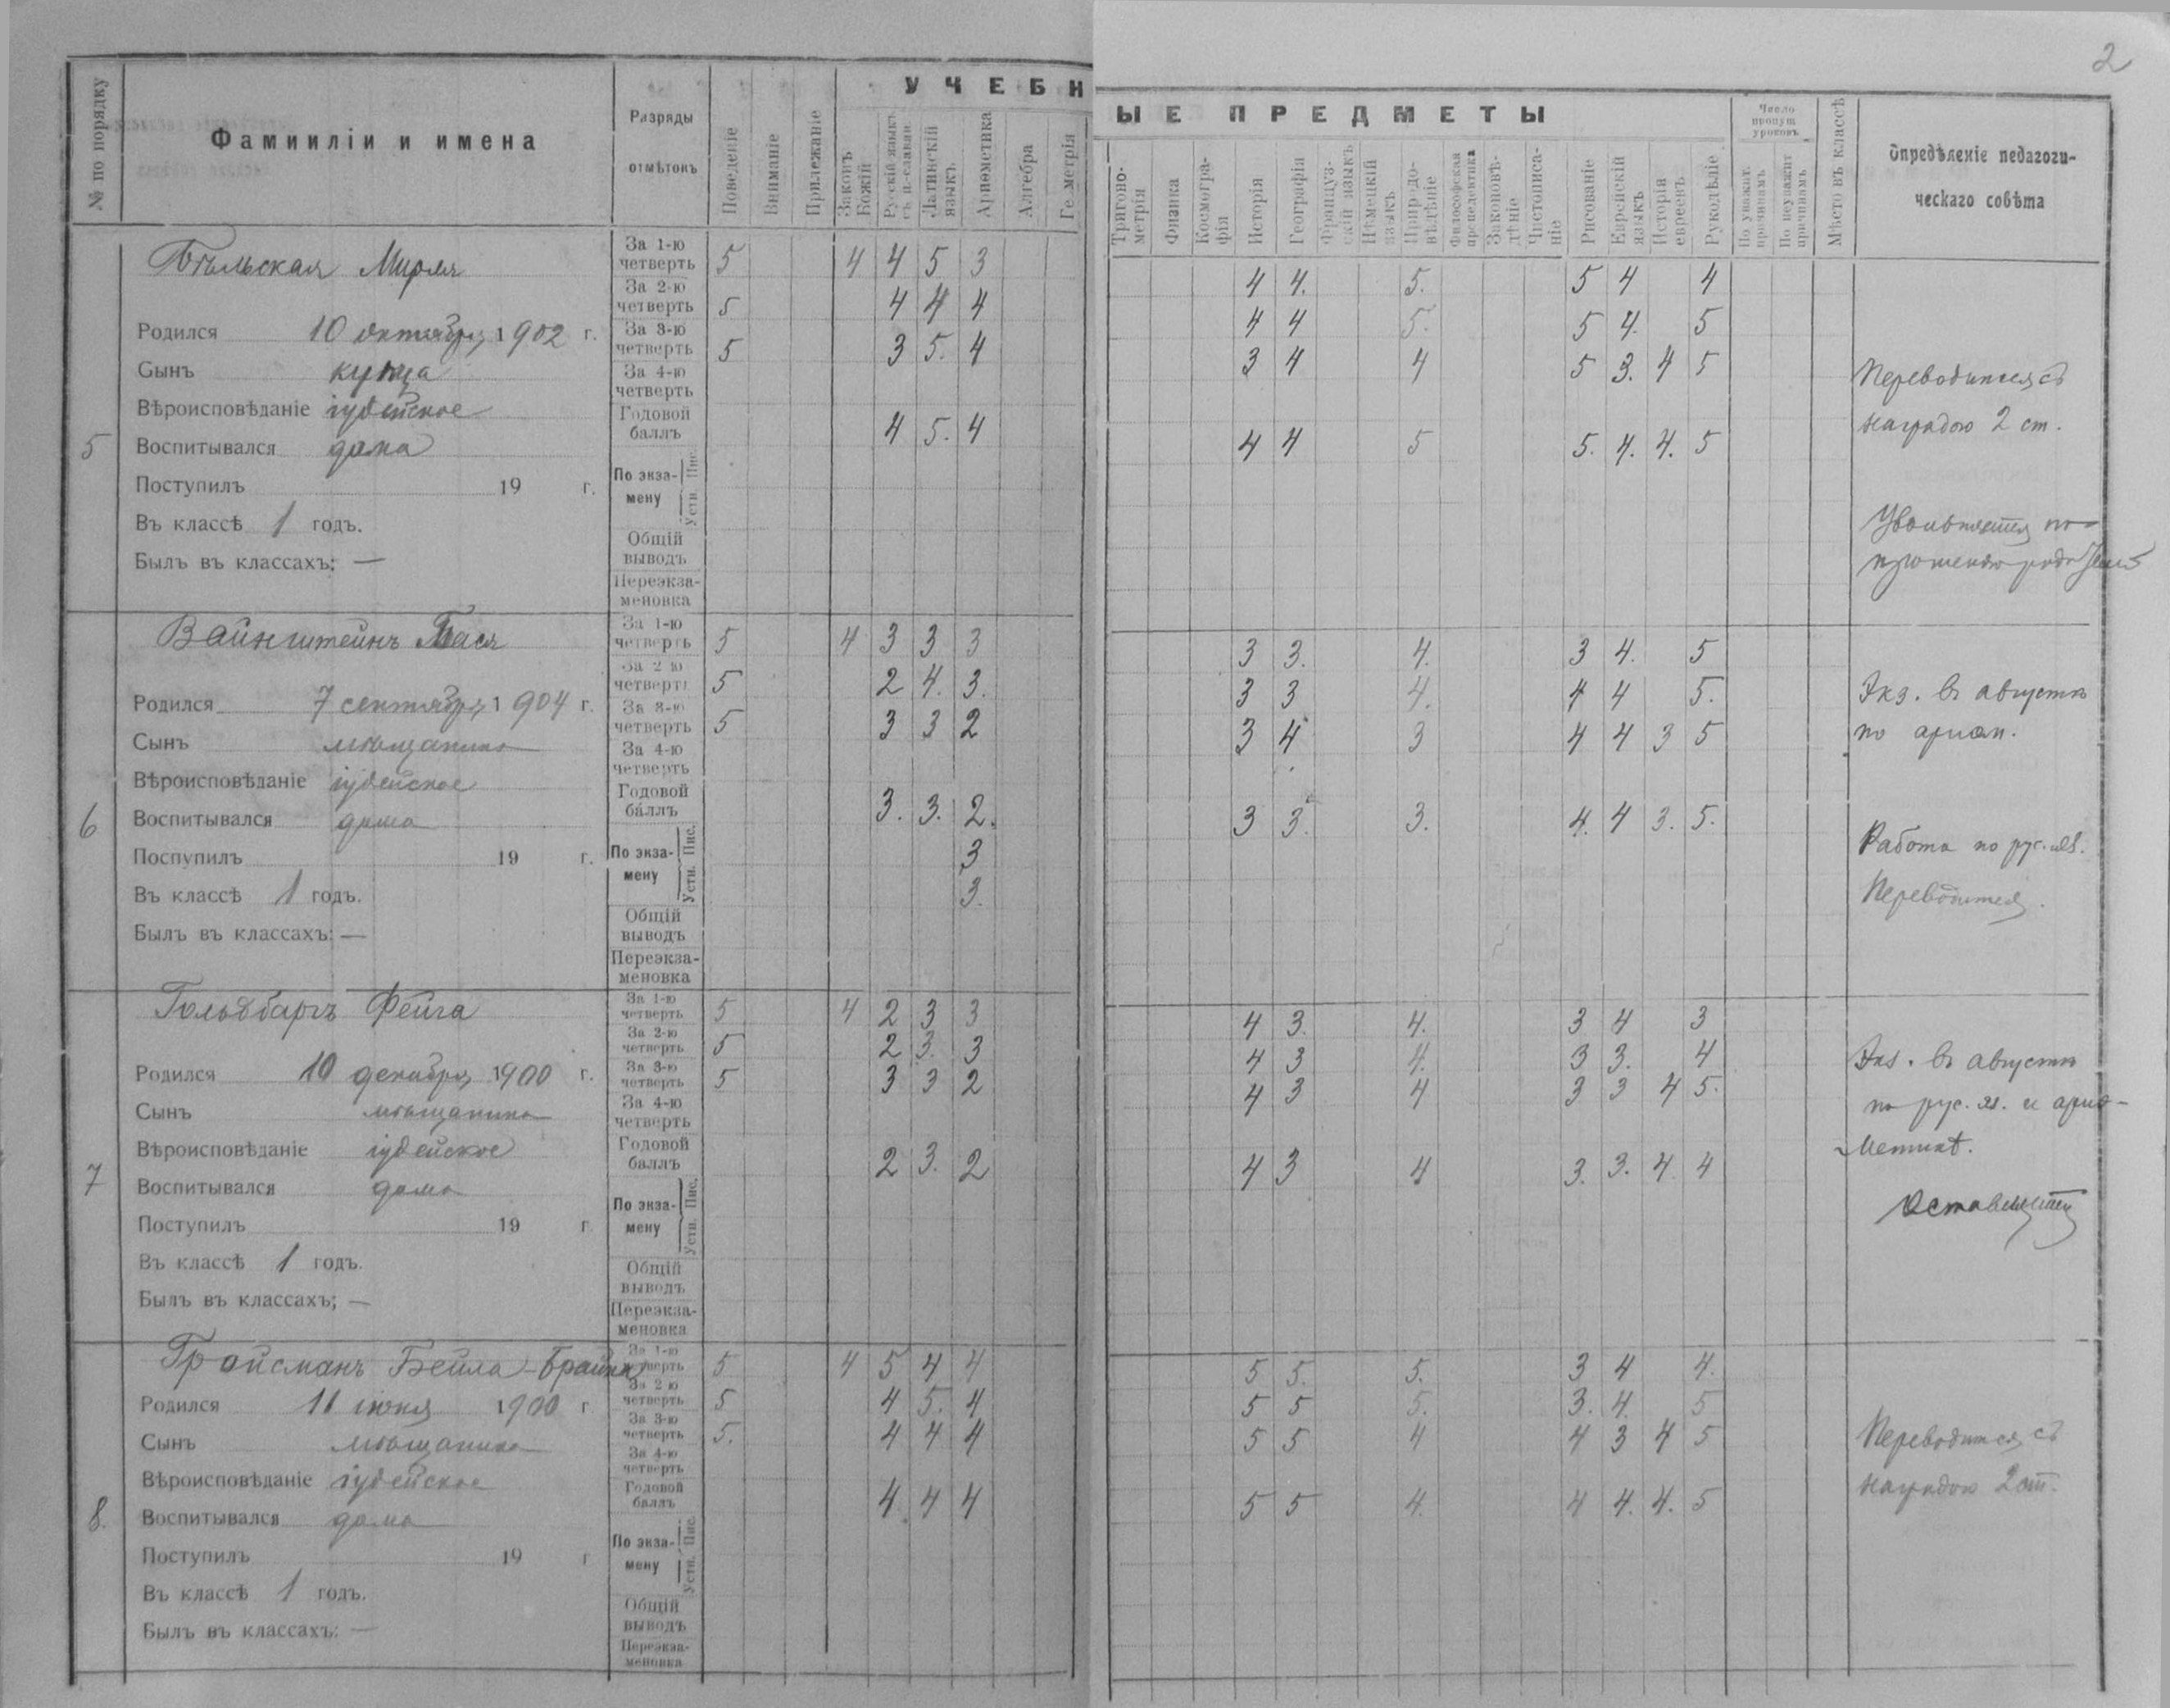 2
УЧЕБНЫЕ ПРЕДМЕТЫ
№ по порядку
Фамииліи и имена
Разряды
отмѣтокъ
Поведеніе
Вниманіе
Прилежаніе
Законъ
Божій
Русскій языкъ
съ ц.-славян.
Латинскій
языкъ
Ариѳметика
Алгебра
Геометрія
Тригоно-
метрія
Физика
Космогра-
фія
Исторія
Географія
Француз-
скій языкъ
Нѣмецкій
языкъ
Природо-
вѣдѣніе
Философская
пропедевтика
Законовѣ-
дѣніе
Чистописа-
ніе
Рисованіе
Еврейскій
языкъ
Исторія
евреевъ
Рукодѣліе
Число
пропущ
уроковъ
По уважит.
причинамъ
По неуважит
причинамъ
Мѣсто въ классѣ
Опредѣленіе педагоги-
ческаго совѣта
5
Бѣльская Мирля
Родился 10 октября 1902 г.
Сынъ купца
Вѣроисповѣданіе іудейское
Воспитывался дома
Поступилъ 19 г.
Въ классѣ 1 годъ.
Былъ въ классахъ: —
За 1-ю четверть 5 4 4 5 3 4 4. 5. 5 4 4
За 2-ю четверть 5 4 4 4 4 4 5. 5 4. 5
За 3-ю четверть 5 3 5. 4 3 4 4 5 3. 4 5
За 4-ю четверть
Годовой баллъ 4 5. 4 4 4 5 5. 4. 4. 5
По экза-мену Пис. Устн.
Общій выводъ
Переэкза-меновка
Переводится съ
наградою 2 ст.
Увольняется по
прошенію родителей
6
Вайнштейнъ Бася
Родился 7 сентября 1904 г.
Сынъ мѣщанина
Вѣроисповѣданіе іудейское
Воспитывался дома
Поспупилъ 19 г.
Въ классѣ 1 годъ.
Былъ въ классахъ: —
За 1-ю четверть 5 4 3 3 3 3 3. 4. 3 4. 5
За 2 ю четверть 5 2 4. 3. 3 3 4. 4 4 5.
За 3-ю четверть 5 3 3 2 3 4 3 4 4 3 5
За 4-ю четверть
Годовой баллъ 3. 3. 2. 3 3. 3. 4. 4 3. 5.
По экза-мену Пис. 3
Устн. 3.
Общій выводъ
Переэкза-меновка
Экз. въ августѣ
по ариѳм.
Работа по рус. яз.
Переводится.
7
Гольдбаргъ Фейга
Родился 10 декабря 1900 г.
Сынъ мѣщанина
Вѣроисповѣданіе іудейское
Воспитывался дома
Поступилъ 19 г
Въ классѣ 1 годъ.
Былъ въ классахъ; —
За 1-ю четверть 5 4 2 3 3 4 3. 4. 3 4 3
За 2-ю четверть 5 2 3. 3 4 3 4. 3 3. 4
За 3-ю четверть 5 3 3 2 4 3 4 3 3 4 5.
За 4-ю четверть
Годовой баллъ 2 3. 2 4 3 4 3. 3. 4 4
По экза-мену Пис. Устн.
Общій выводъ
Переэкза-меновка
Экз. въ августѣ
по рус. яз. и ариѳ-
метикѣ.
Оставляется
8.
Гройсманъ Бейла-Брайна
Родился 11 іюня 1900 г
Сынъ мѣщанина
Вѣроисповѣданіе іудейское
Воспитывался дома
Поступилъ 19 г
Въ классѣ 1 годъ.
Былъ въ классахъ: —
За 1-ю четверть 5 4 5 4 4 5 5. 5. 3 4 4.
За 2 ю четверть 5 4 5. 4 5 5 5. 3. 4. 5
За 3-ю четверть 5. 4 4 4 5 5 4 4 3 4 5
За 4-ю четверть
Годовой баллъ 4. 4 4 5 5 4. 4 4. 4. 5
По экза-мену Пис. Устн.
Общій выводъ
Переэкза-меновка
Переводится съ
наградою 2 ст.